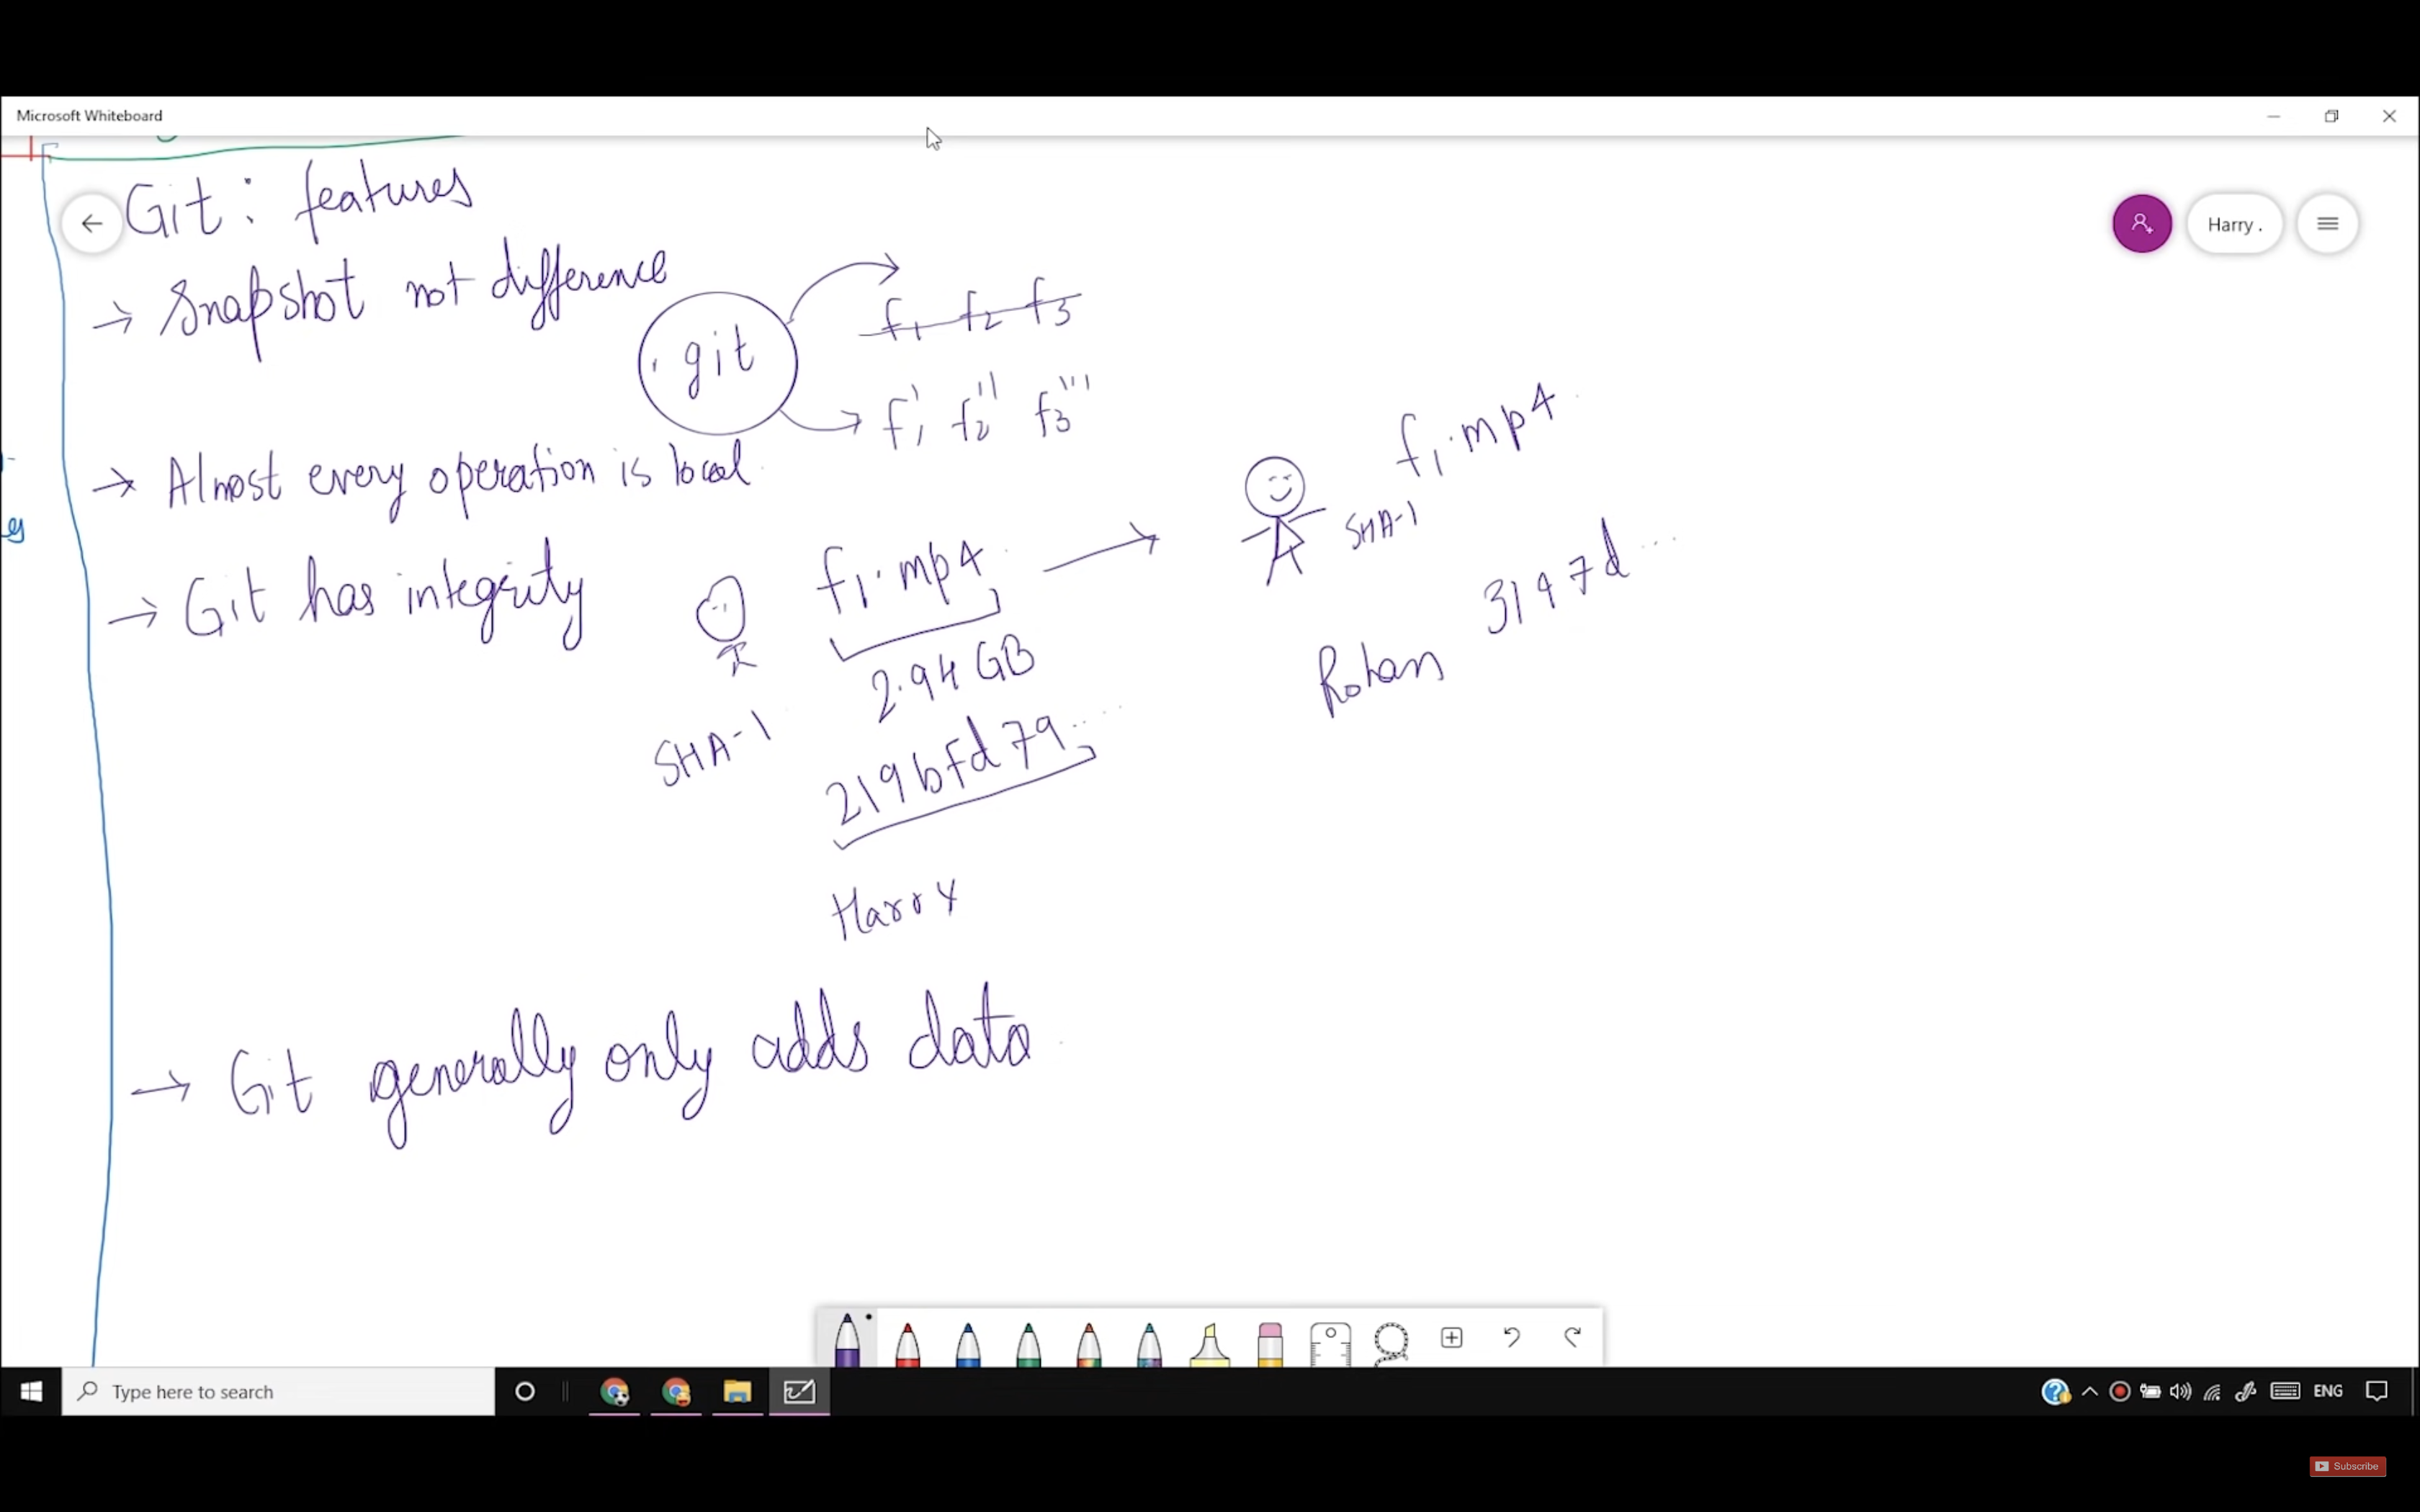 Microsoft Whiteboard
Git: features
Harry .
→ Snapshot not difference
.git
f1 f2 f3
f1' f2'' f3'''
→ Almost every operation is local.
f1.mp4
SHA-1
3197d...
Rohan
→ Git has integrity
f1.mp4
2.94 GB
SHA-1
219bfd79....
Harry
→ Git generally only adds data
Type here to search
ENG
Subscribe